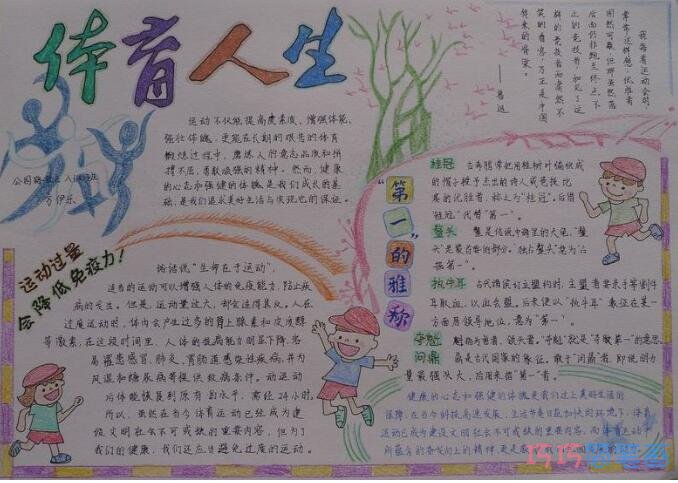 体育人生
运动不仅能提高身体素质、增强体能、
强壮体魄，更能在长期的艰苦的体育
锻炼过程中，磨炼人的意志品质和拼
搏不屈、勇敢顽强的精神。然而，健康
的心态和强健的体魄是我们成长的基
础，是我们追求美好生活与实现它的保证。
万伊乐
我每看运动会时，
常常这样想：优胜者
固然可敬，但那虽然落
后而仍非跑至终点不
止的竞技者，和见了这
样的竞技者而肃然不
笑的看客，乃正是中国
将来的脊梁。
——鲁迅
运动过量
会降低免疫力！
俗话说“生命在于运动”，
适当的运动可以增强人体的免疫能力，防止疾
病的发生。但是，运动量过大，却会适得其反。人在
过度运动时，体内会产生过多的肾上腺素和皮质醇
等激素，在这段时间里，人体的抵病能力明显下降，容
易罹患感冒、肺炎、胃肠道感染性疾病，并为
风湿和糖尿病等提供致病条件。劝运动
后体能恢复到原有的水平，需经24小时。
所以，虽然在当今体育运动已经成为建
设文明社会不可或缺的重要内容，但为了
我们的健康，我们还应当避免过度的运动。
“第一”的雅称
桂冠 古希腊常把用桂树叶编织成
的帽子授予杰出的诗人或竞技比
赛的优胜者，称之为“桂冠”。后借
“桂冠”代替“第一”。
鳌头 鳌是传说中海里的大龟，“鳌
头”是最前要的部分。“独占鳌头”意为“占
据第一”。
执牛耳 古代诸侯订立盟约时，主盟者要亲手等割牛
耳取血，以血会盟。后来便以“执牛耳”表征在某一
方面居领导地位，意为“第一”。
夺魁 魁指为首者，领头者。“夺魁”就是“夺取第一”的意思。
问鼎 鼎是古代国家的象征。敢于“问鼎”者，即说明力
量最强大，后用来指“第一”者。
健康的心态和强健的体魄是我们过上美好生活的
保障，在当今科技高速发展、生活节奏日益加快的环境下，体育
运动已成为建设文明社会不可或缺的重要内容，而体育运动中
所蕴含的奋发向上的精神，更是